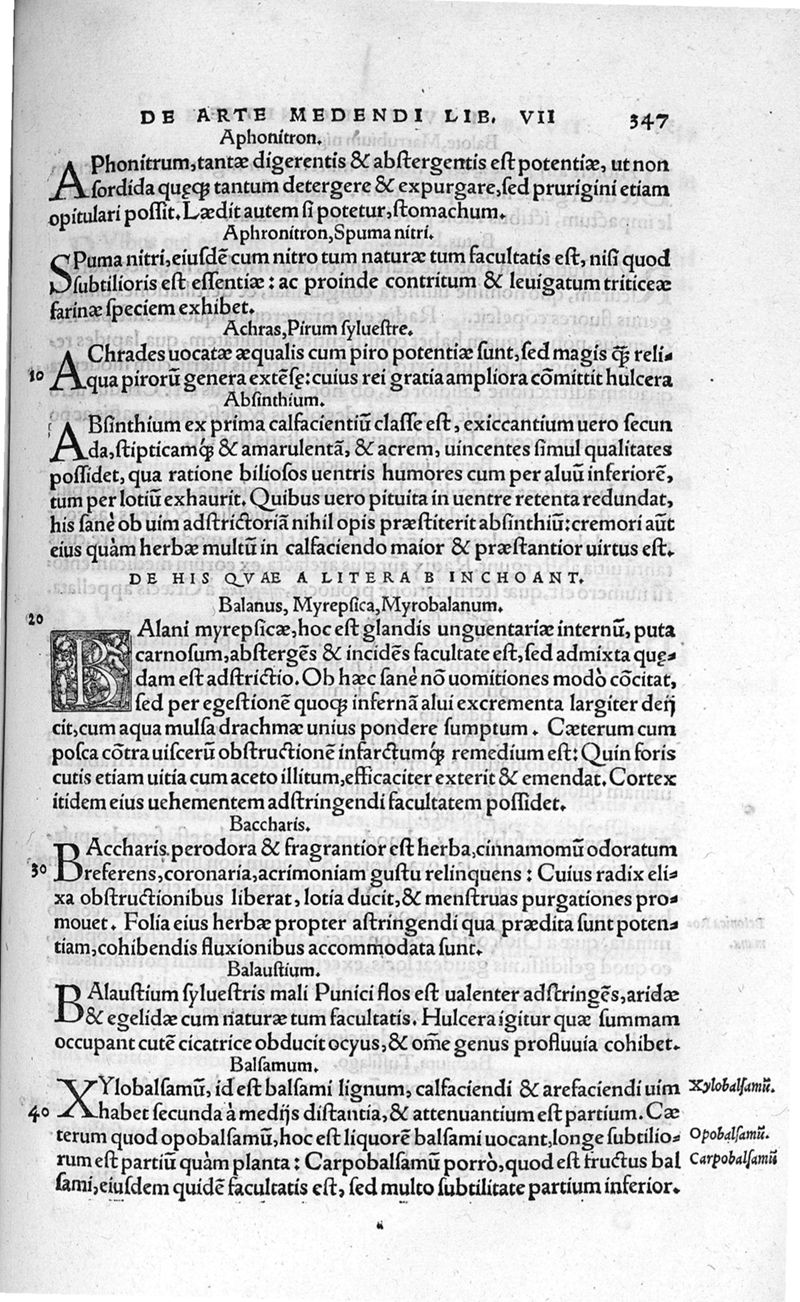 DE ARTE MEDENDI LIB. VII 347
Aphonitron.
APhonitrum, tantæ digerentis & abstergentis est potentiæ, ut non
sordida quęq́ꝫ tantum detergere & expurgare, sed prurigini etiam
opitulari possit. Lædit autem si potetur, stomachum.
Aphronitron, Spuma nitri.
SPuma nitri, eiusdē cum nitro tum naturæ tum facultatis est, nisi quod
subtilioris est essentiæ: ac proinde contritum & leuigatum triticeæ
farinæ speciem exhibet.
Achras, Pirum syluestre.
AChrades uocatæ æqualis cum piro potentiæ sunt, sed magis ꝗ̃ꝫ reli-
10 qua pirorū genera extēsę: cuius rei gratia ampliora cōmittit hulcera
Absinthium.
ABsinthium ex prima calfacientiū classe est, exiccantium uero secun
da, stipticamq́ꝫ & amarulentā, & acrem, uincentes simul qualitates
possidet, qua ratione biliosos uentris humores cum per aluū inferiorē,
tum per lotiū exhaurit. Quibus uero pituita in uentre retenta redundat,
his sanè ob uim adstrictoriā nihil opis præstiterit absinthiū: cremori aūt
eius quàm herbæ multū in calfaciendo maior & præstantior uirtus est.
DE HIS QVAE A LITERA B INCHOANT.
20 Balanus, Myrepsica, Myrobalanum.
BAlani myrepsicæ, hoc est glandis unguentariæ internū, puta
carnosum, abstergēs & incidēs facultate est, sed admixta quę-
dam est adstrictio. Ob hæc sanè nō uomitiones modò cōcitat,
sed per egestionē quoqꝫ infernā alui excrementa largiter deij
cit, cum aqua mulsa drachmæ unius pondere sumptum. Cæterum cum
posca cōtra uiscerū obstructionē infarctumq́ꝫ remedium est: Quin foris
cutis etiam uitia cum aceto illitum, efficaciter exterit & emendat. Cortex
itidem eius uehementem adstringendi facultatem possidet.
Baccharis.
BAccharis perodora & fragrantior est herba, cinnamomū odoratum
30 referens, coronaria, acrimoniam gustu relinquens: Cuius radix eli-
xa obstructionibus liberat, lotia ducit, & menstruas purgationes pro-
mouet. Folia eius herbæ propter astringendi qua prædita sunt poten-
tiam, cohibendis fluxionibus accommodata sunt.
Balaustium.
BAlaustium syluestris mali Punici flos est ualenter adstringēs, aridæ
& egelidæ cum naturæ tum facultatis. Hulcera igitur quæ summam
occupant cutē cicatrice obducit ocyus, & om̄e genus profluuia cohibet.
Balsamum.
XYlobalsamū, id est balsami lignum, calfaciendi & arefaciendi uim Xylobalsamū.
40 habet secunda à medijs distantia, & attenuantium est partium. Cæ
terum quod opobalsamū, hoc est liquorē balsami uocant, longe subtilio- Opobalsamū.
rum est partiū quàm planta: Carpobalsamū porrò, quod est fructus bal Carpobalsamū
sami, eiusdem quidē facultatis est, sed multo subtilitate partium inferior.